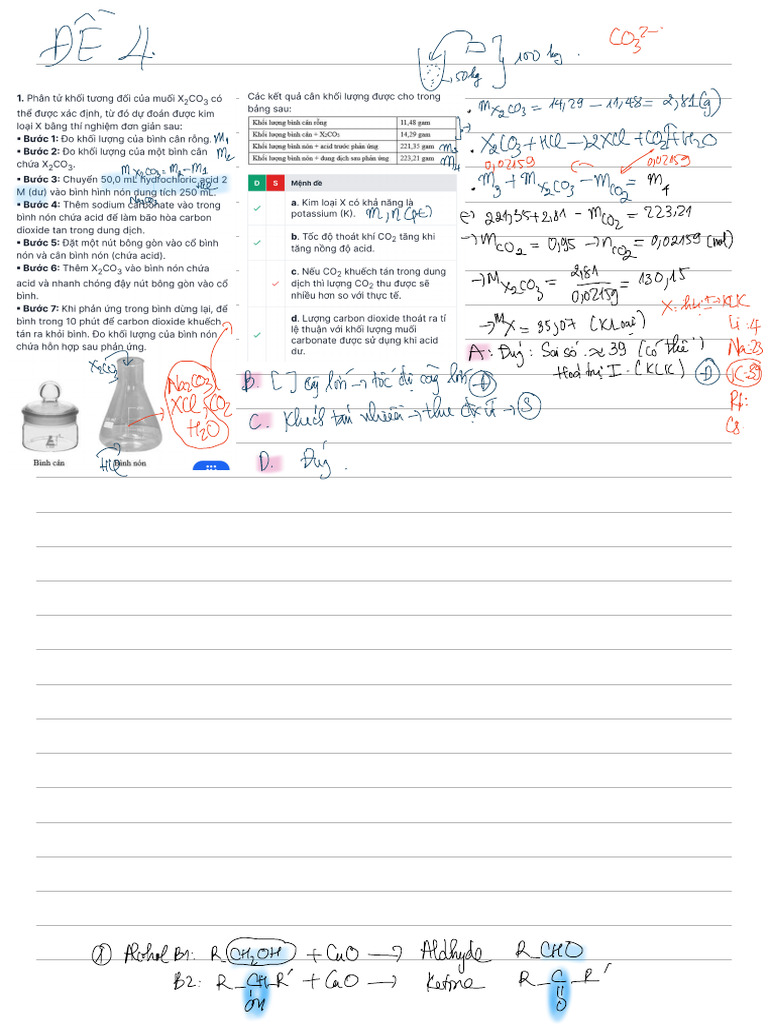 ĐỀ 4.
CO₃²⁻
50kg
100 kg
1. Phân tử khối tương đối của muối X₂CO₃ có
thể được xác định, từ đó dự đoán được kim
loại X bằng thí nghiệm đơn giản sau:
• Bước 1: Đo khối lượng của bình cân rỗng. m₁
• Bước 2: Đo khối lượng của một bình cân m₂
chứa X₂CO₃.
m X₂CO₃ = m₂ - m₁
• Bước 3: Chuyển 50,0 mL hydrochloric acid 2
M (dư) vào bình hình nón dung tích 250 mL.
Na₂CO₃
• Bước 4: Thêm sodium carbonate vào trong
bình nón chứa acid để làm bão hòa carbon
dioxide tan trong dung dịch.
• Bước 5: Đặt một nút bông gòn vào cổ bình
nón và cân bình nón (chứa acid).
• Bước 6: Thêm X₂CO₃ vào bình nón chứa
acid và nhanh chóng đậy nút bông gòn vào cổ
bình.
• Bước 7: Khi phản ứng trong bình dừng lại, để
bình trong 10 phút để carbon dioxide khuếch
tán ra khỏi bình. Đo khối lượng của bình nón
chứa hỗn hợp sau phản ứng.
X₂CO₃
Na₂CO₃
XCl, CO₂
H₂O
HCl
Bình cân
Bình nón
Các kết quả cân khối lượng được cho trong
bảng sau:
Khối lượng bình cân rỗng 11,48 gam
Khối lượng bình cân + X₂CO₃ 14,29 gam
Khối lượng bình nón + acid trước phản ứng 221,35 gam m₃
Khối lượng bình nón + dung dịch sau phản ứng 223,21 gam m₄
Đ S Mệnh đề
a. Kim loại X có khả năng là
potassium (K). m, n (pt)
b. Tốc độ thoát khí CO₂ tăng khi
tăng nồng độ acid.
c. Nếu CO₂ khuếch tán trong dung
dịch thì lượng CO₂ thu được sẽ
nhiều hơn so với thực tế.
d. Lượng carbon dioxide thoát ra tỉ
lệ thuận với khối lượng muối
carbonate được sử dụng khi acid
dư.
• m X₂CO₃ = 14,29 - 11,48 = 2,81 (g)
• X₂CO₃ + HCl → 2XCl + CO₂↑ + H₂O
0,02159 ← 0,02159
• m₃ + m X₂CO₃ - m CO₂ = m₄
⇔ 221,35 + 2,81 - m CO₂ = 223,21
→ m CO₂ = 0,95 → n CO₂ = 0,02159 (mol)
→ M X₂CO₃ = 2,81 / 0,02159 = 130,15
→ M X = 35,07 (K loại)
X: hoá trị I → KLK
Li: 7
Na: 23
K: 39
Rb:
Cs:
A: Đúng: Sai số ≈ 39 (có thể)
Hoá trị I - (KLK) → Đ
B. [ ] càng lớn → tốc độ càng lớn → Đ
C. Khuếch tán nhiều → thu được ít → S
D. Đúng.
① Alcohol B1: R_CH₂OH + CuO → Aldehyde R_CHO
B2: R_CH_R' + CuO → Ketone R_C_R'
OH O